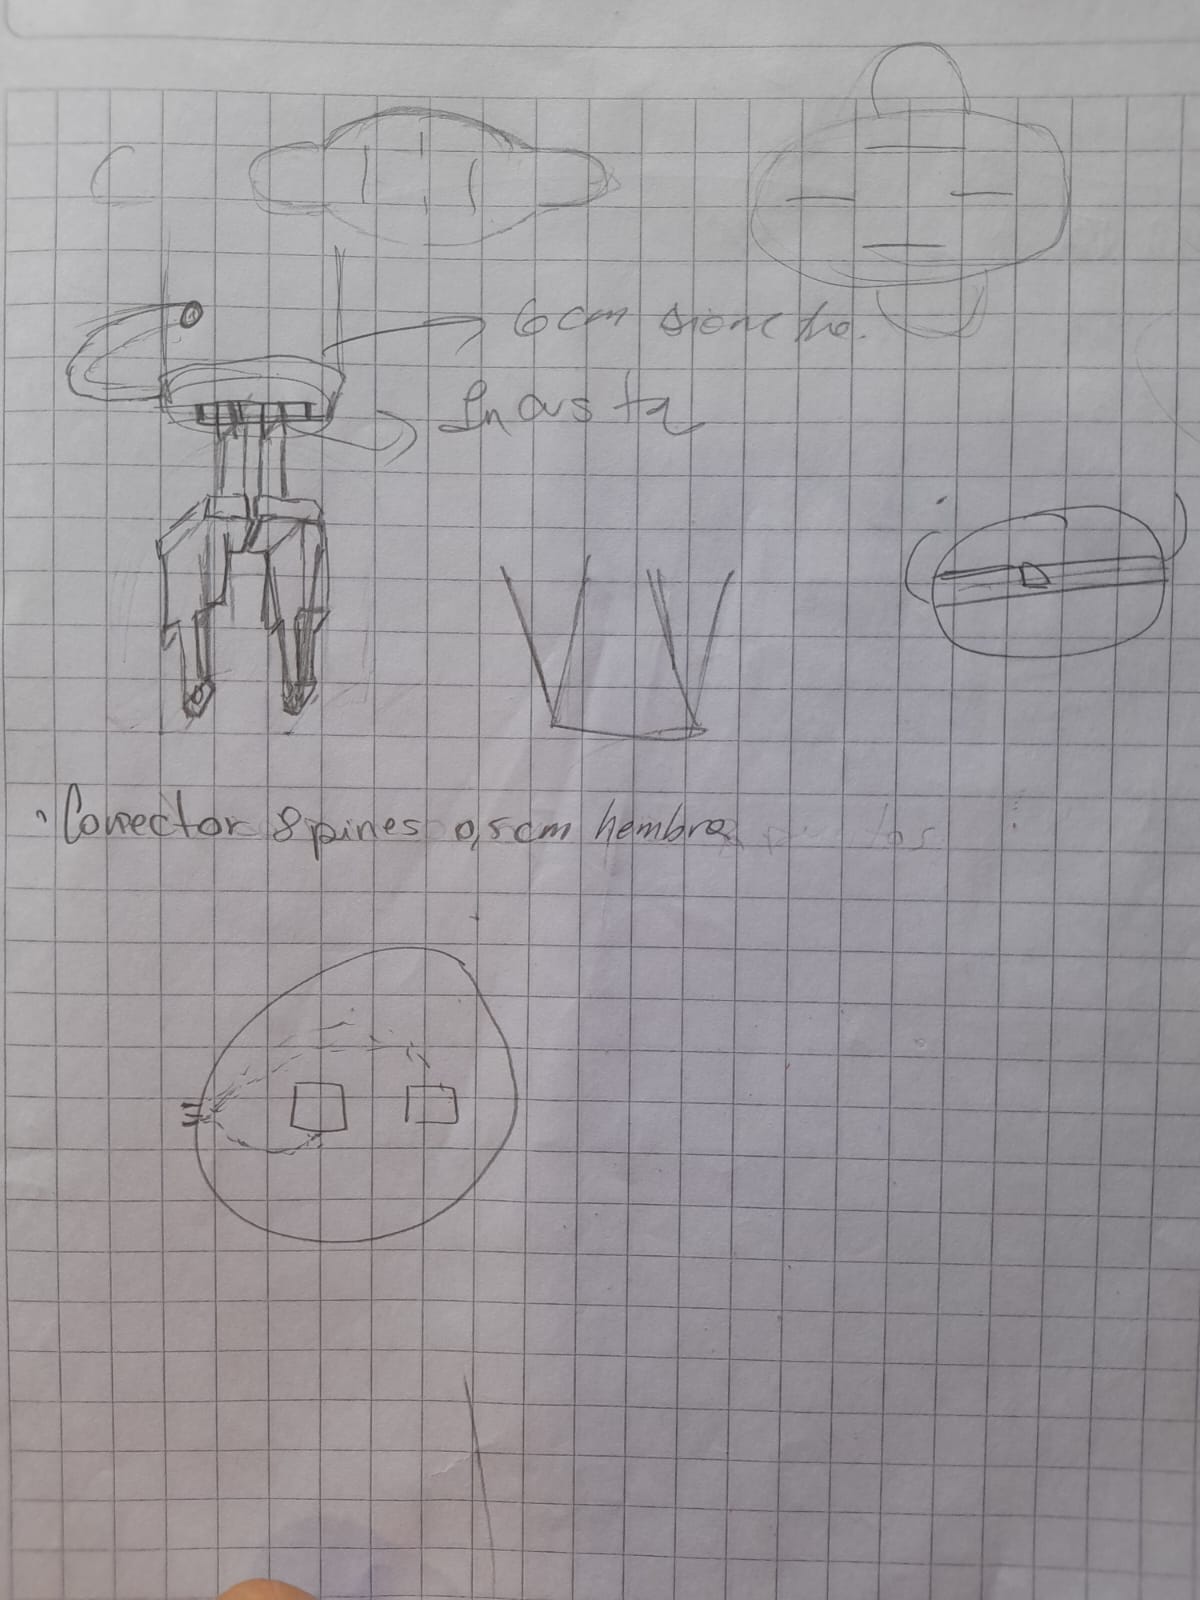 6cm
Incrusta
Conector 8 pines 0,5cm hembra